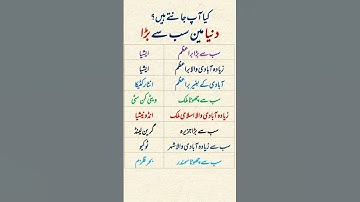 کیا آپ جانتے ہیں؟
دنیا میں سب سے بڑا
سب سے بڑا براعظم ایشیا
زیادہ آبادی والا براعظم ایشیا
آبادی کے بغیر براعظم انٹارکٹیکا
سب سے چھوٹا ملک ویٹی کن سٹی
زیادہ آبادی والا اسلامی ملک انڈونیشیا
سب سے بڑا جزیرہ گرین لینڈ
سب سے زیادہ آبادی والا شہر ٹوکیو
سب سے چھوٹا سمندر بحر قلزم